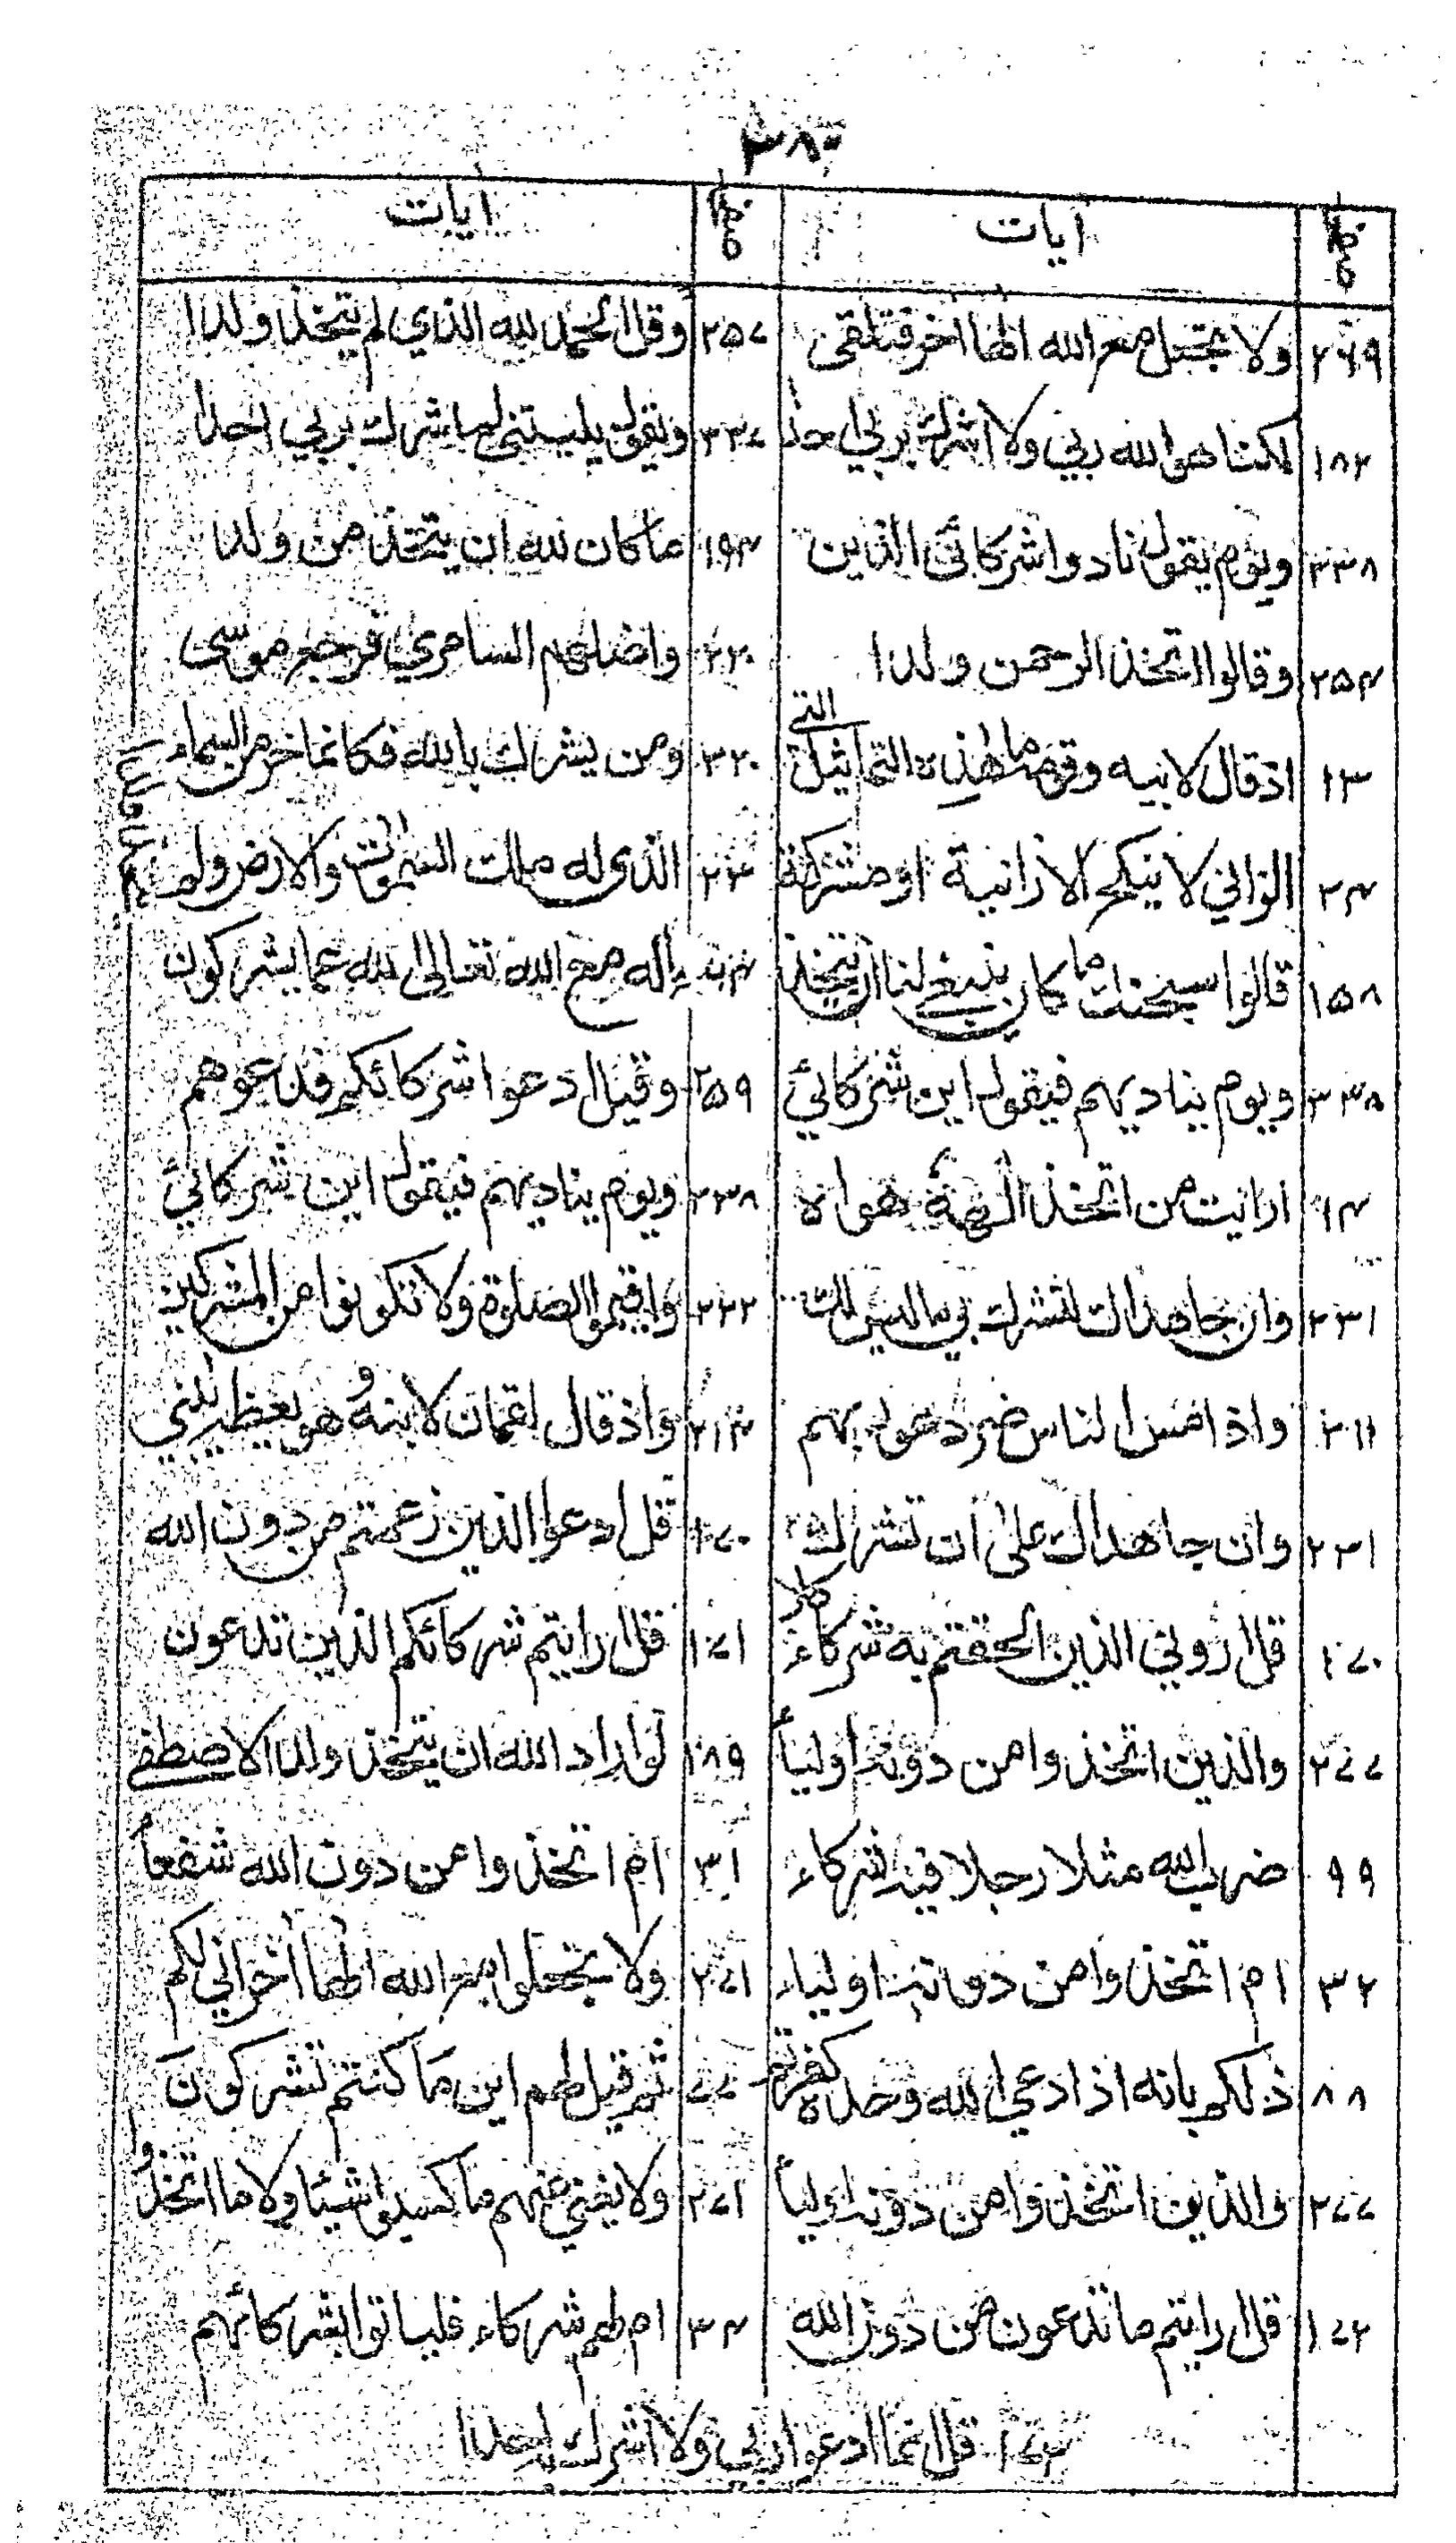 ۳۸۰
آیات
آیات
۲۶۹ ولا تجعل مع الله الها اخر فتلقی
۲۵۷ وقل الحمد لله الذي لم يتخذ ولدا
۱۸۲ لكنا هو الله ربي ولا اشرك بربي احدا
۳۳۷ ويقول يليتني لم اشرك بربي احدا
۳۳۸ ويوم يقول نادوا شركائي الذين
۱۹۴ ما كان لله ان يتخذ من ولد
۲۵۴ وقالوا اتخذ الرحمن ولدا
۲۲۰ واضلهم السامري فرجع موسى
۱۳ اذ قال لابيه وقومه ما هذه التماثيل التي
۳۲۰ ومن يشرك بالله فكانما خر من السماء
۲۴ الزاني لا ينكح الا زانية او مشركة
الذي له ملك السموت والارض ولم
۱۵۸ قالوا سبحنك ما كان ينبغي لنا ان نتخذ
ءاله مع الله تعالى الله عما يشركون
۳۳۸ ويوم يناديهم فيقول اين شركائي
۲۵۹ وقيل ادعوا شركائكم فدعوهم
۱۴ ارايت من اتخذ الهه هواه
۳۳۸ ويوم يناديهم فيقول اين شركائي
۲۳۱ وان جاهداك لتشرك بي ما ليس لك
۲۲۲ واقيموا الصلوة ولا تكونوا من المشركين
۲۱۱ واذا مس الناس ضر دعوا ربهم
۲۱۴ واذ قال لقمان لابنه وهو يعظه يبني
۲۳۱ وان جاهداك على ان تشرك
۱۷۰ قل ادعوا الذين زعمتم من دون الله
۱۷۰ قل اروني الذين الحقتم به شركاء كلا
۱۷۱ قل ارايتم شركائكم الذين تدعون
۲۷۷ والذين اتخذوا من دونه اولياء
۱۸۹ لو اراد الله ان يتخذ ولدا لاصطفى
۹۹ ضرب الله مثلا رجلا فيه شركاء
۳۱ ام اتخذوا من دون الله شفعاء
۳۲ ام اتخذوا من دونه اولياء
۲۷۱ ولا تجعلوا مع الله الها اخر اني لكم
۸۸ ذلكم بانه اذا دعي الله وحده كفرتم
۷۷ ثم قيل لهم اين ما كنتم تشركون
۲۷۷ والذين اتخذوا من دونه اولياء
۲۷۱ ولا يغني عنهم ما كسبوا شيئا ولا ما اتخذوا
۱۷۲ قل ارايتم ما تدعون من دون الله
۳۴ ام لهم شركاء فلياتوا بشركائهم
۱۷۲ قل انما ادعوا ربي ولا اشرك به احدا